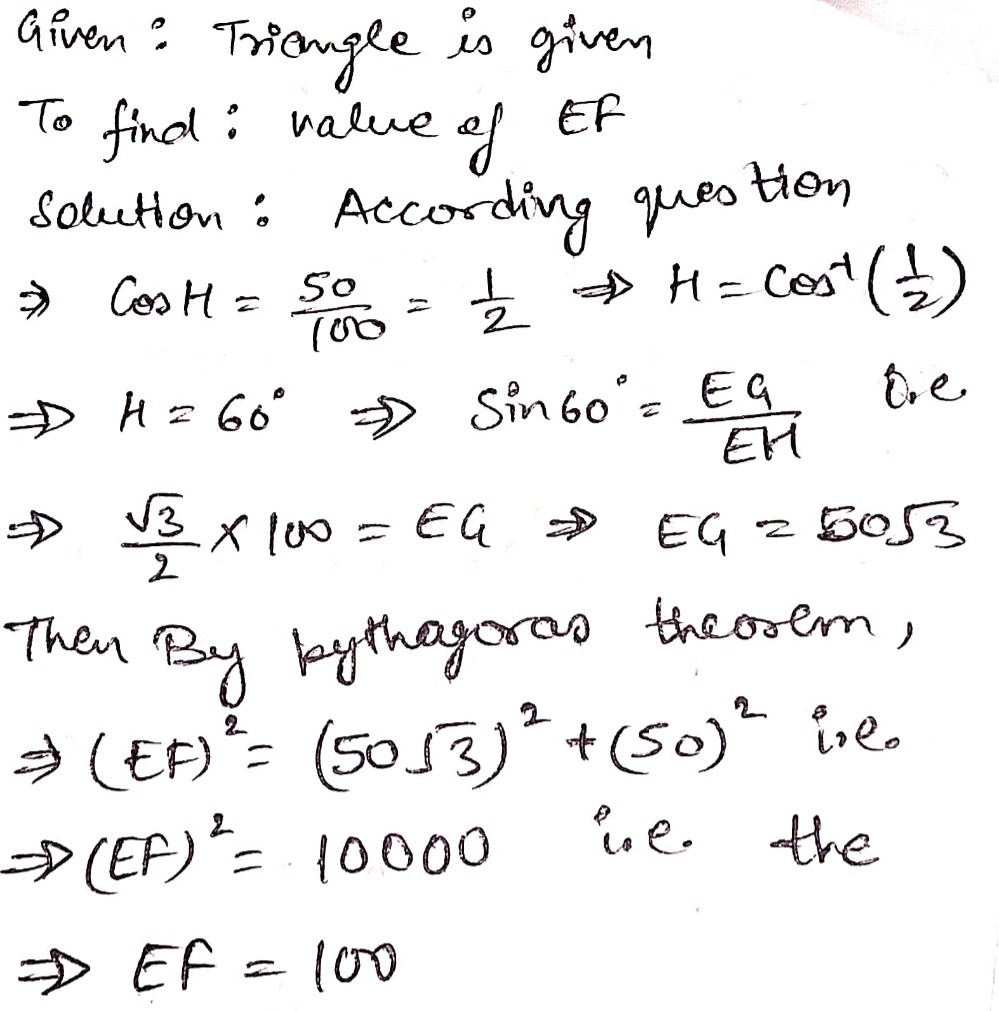 Given : Triangle is given
To find : value of EF
Solution : According question
⇒ Cos H = 50/100 = 1/2 ⇒ H = Cos⁻¹(1/2)
⇒ H = 60° ⇒ Sin 60° = EG/EH i.e.
⇒ √3/2 × 100 = EG ⇒ EG = 50√3
Then By pythagoras theorem,
⇒ (EF)² = (50√3)² + (50)² i.e.
⇒ (EF)² = 10000 i.e. the
⇒ EF = 100